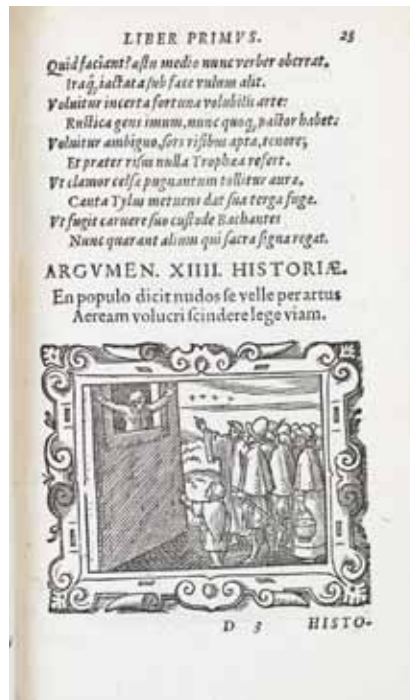 LIBER PRIMVS. 25
Quid faciant? astu medio nunc verber oberrat.
Iraq́, iactata sub face vulnus alit.
Voluitur incerta fortuna volubilis arte:
Rustica gens imum, nunc quoq, pastor habet:
Voluitur ambiguo, sors risibus apta, tenore;
Et præter risus nulla Trophæa refert.
Vt clamor celsa pugnantum tollitur aura,
Cauta Tylus metuens dat sua terga fugæ.
Vt fugit caruere suo custode Bachantes
Nunc quærant alium qui sacra signa regat.
ARGVMEN. XIIII. HISTORIÆ.
En populo dicit nudos se velle per artus
Aeream volucri scindere lege viam.
D 3 HISTO-